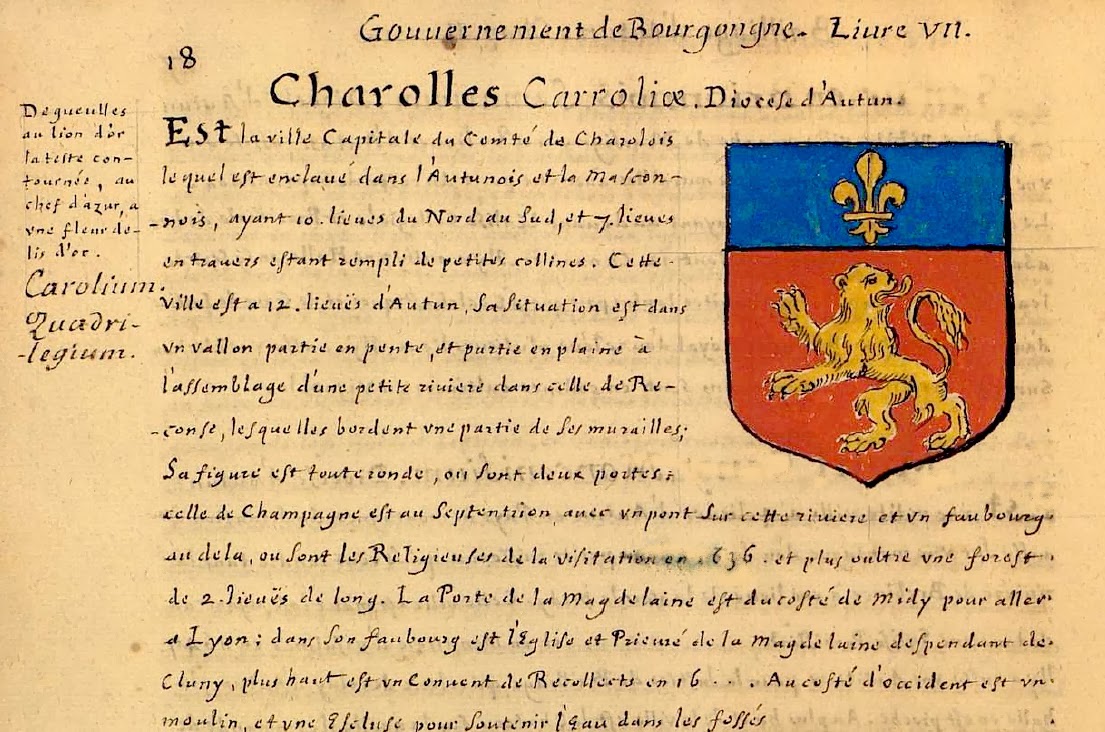 Gouuernement de Bourgongne. Liure VII.
18
Charolles Carroliæ. Diocese d'Autun.
De gueulles
au lion d'or
la teste con-
tournée, au
chef d'azur, a
vne fleur de-
lis d'or.
Carolium.
Quadri-
-legium.
Est la ville Capitale du Comté de Charolois
lequel est enclaué dans l'Autunois et la Mascon-
-nois, ayant 10. lieues du Nord au Sud, et 7. lieues
en trauers estant rempli de petites collines. Cette
ville est a 12. lieuës d'Autun, Sa Situation est dans
vn vallon partie en pente, et partie en plaine à
l'assemblage d'une petite riuiere dans celle de Re-
-conse, lesquelles bordent vne partie de Ses murailles;
Sa figure est toute ronde, ou Sont deux portes;
celle de Champagne est au Septentrion, auec vn pont Sur cette riuiere et vn faubourg
au dela, ou Sont les Religieuses de la visitation en 1636. et plus oultre vne forest
de 2. lieuës de long. La Porte de la Magdelaine est du costé de Midy pour aller
a Lyon; dans Son faubourg est l'Eglise et Prieuré de la Magdelaine despendant de
Cluny, plus haut est vn Conuent de Recollects en 16 . . . Au costé d'occident est vn
moulin, et vne Escluse pour Soutenir l'eau dans les fossés